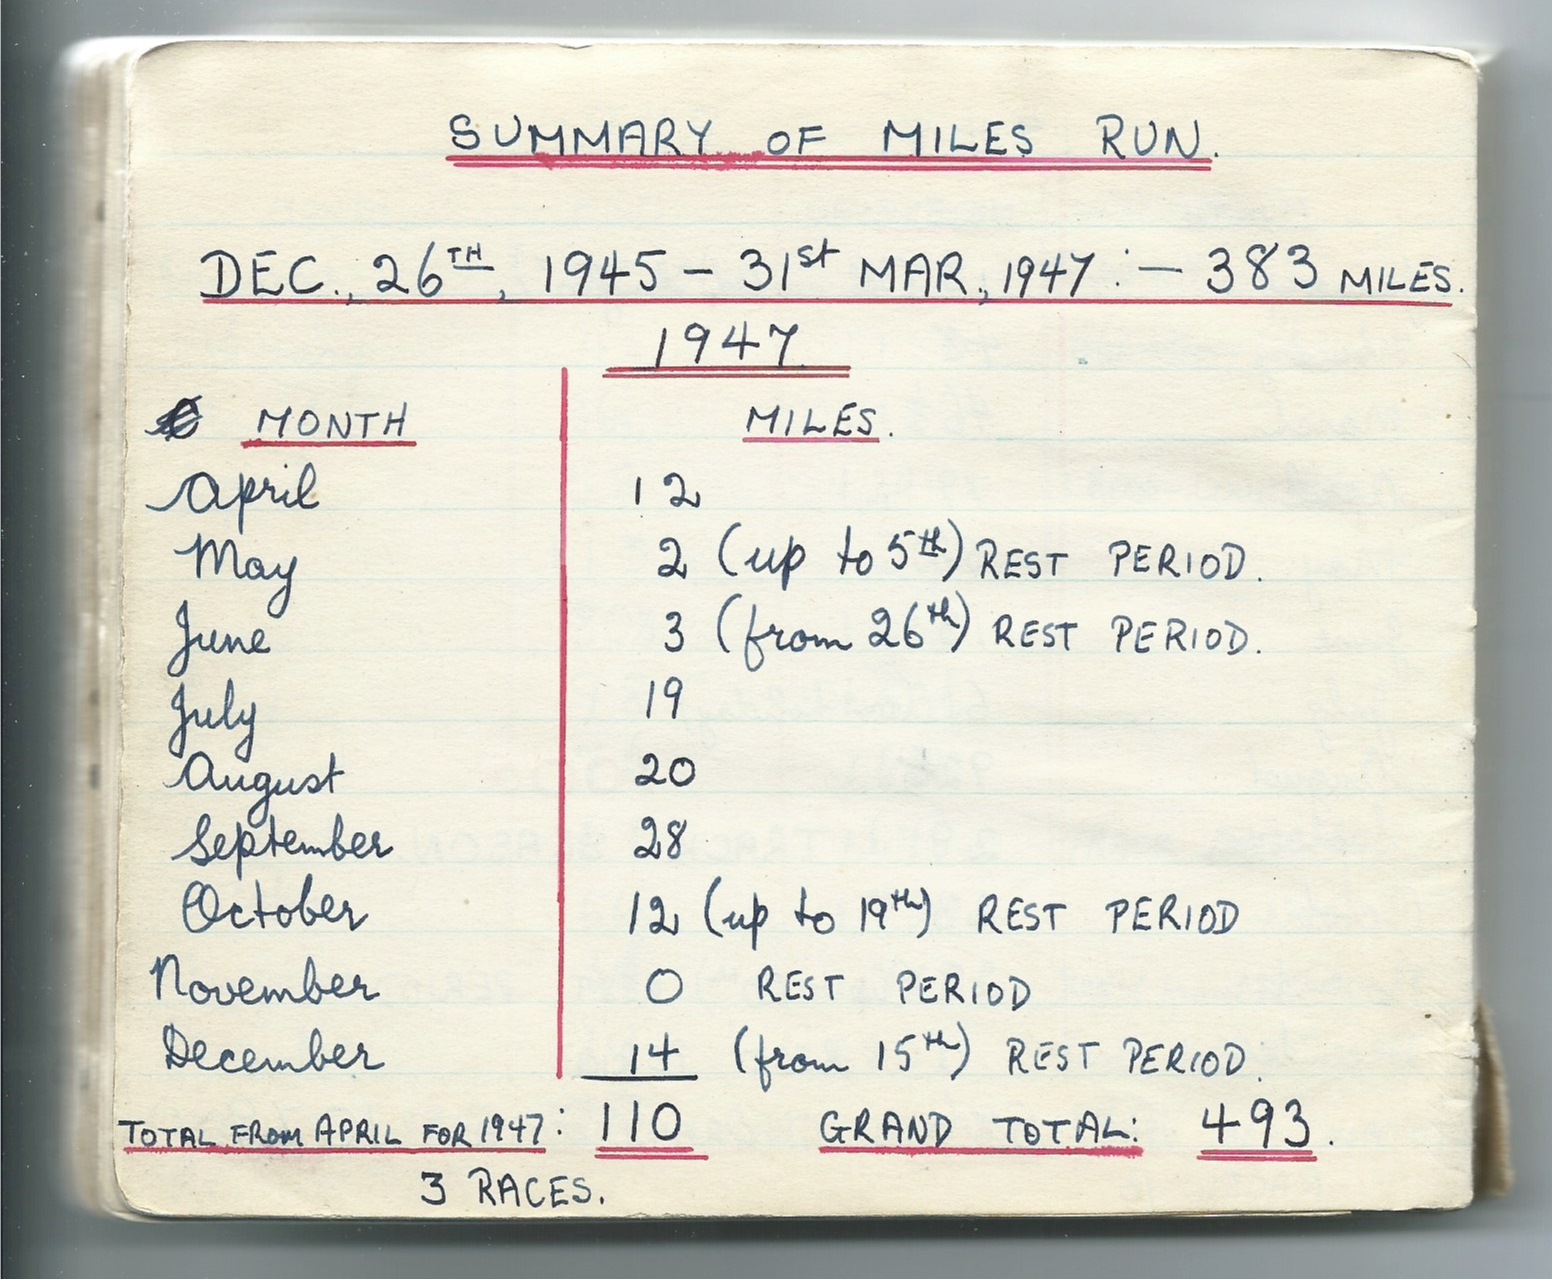 SUMMARY OF MILES RUN.
DEC., 26TH, 1945 – 31st MAR., 1947 :– 383 MILES.
1947
MONTH MILES.
April 12
May 2 (up to 5th) REST PERIOD.
June 3 (from 26th) REST PERIOD.
July 19
August 20
September 28
October 12 (up to 19th) REST PERIOD
November 0 REST PERIOD
December 14 (from 15th) REST PERIOD.
TOTAL FROM APRIL FOR 1947: 110 GRAND TOTAL: 493.
3 RACES.